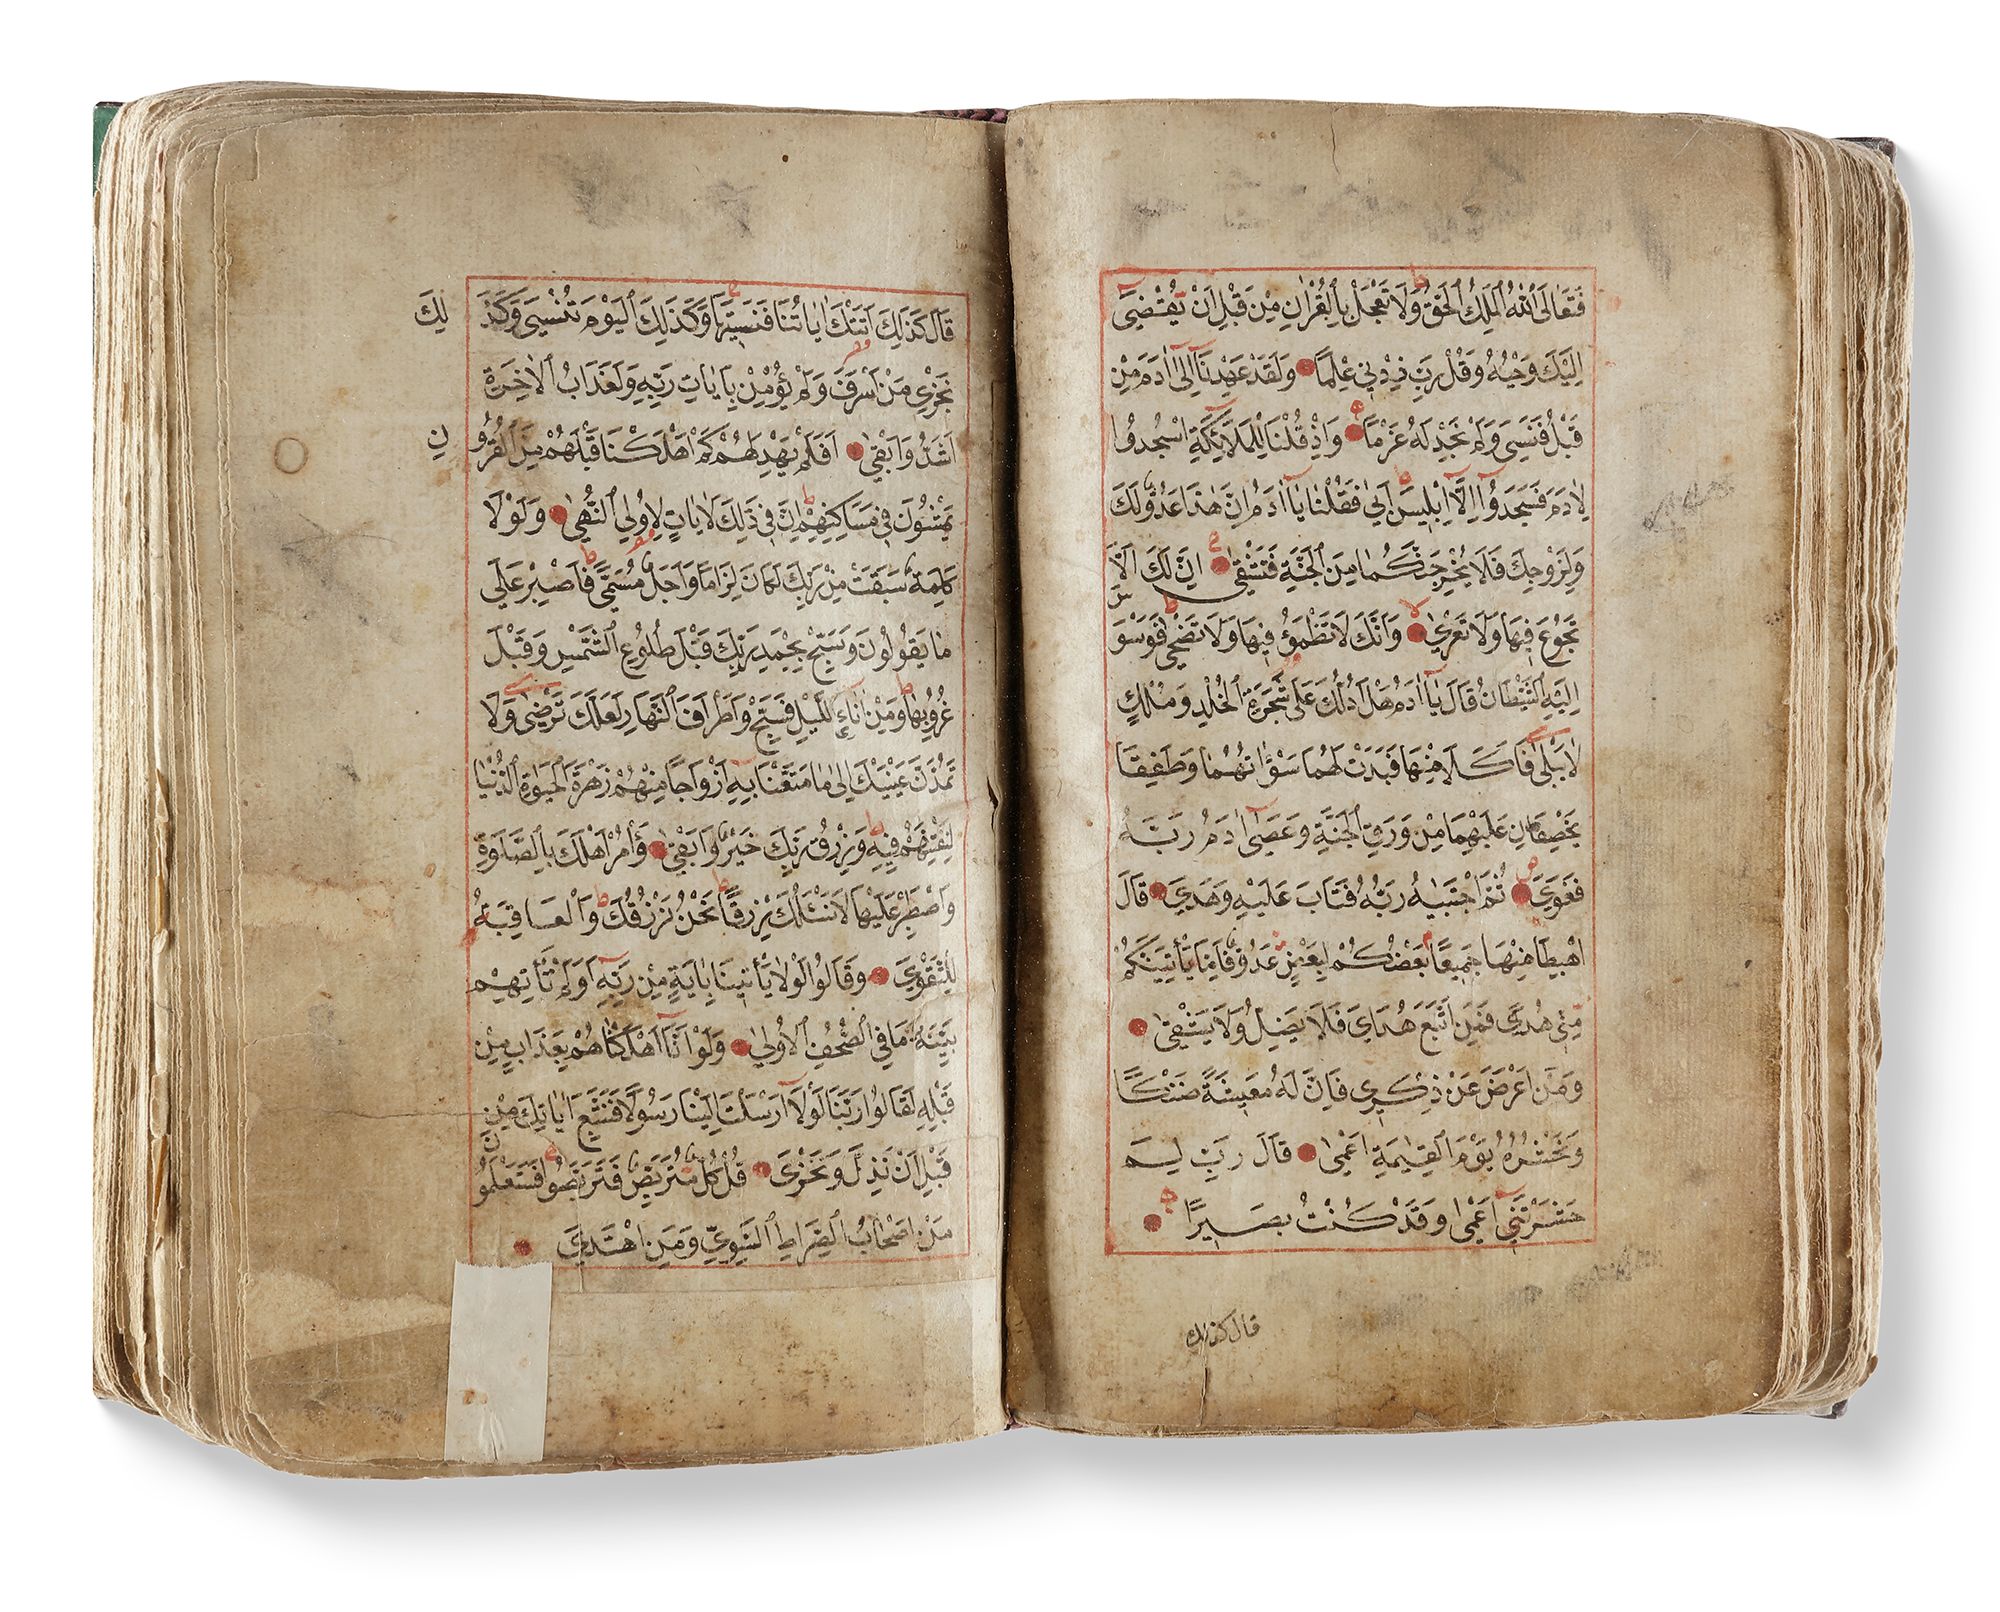 فَتَعَالَى اللّٰهُ الْمَلِكُ الْحَقُّ وَلَا تَعْجَلْ بِالْقُرْاٰنِ مِنْ قَبْلِ اَنْ يُقْضٰى
اِلَيْكَ وَحْيُهُ وَقُلْ رَبِّ زِدْنِي عِلْمًا وَلَقَدْ عَهِدْنَا اِلٰى اٰدَمَ مِنْ
قَبْلُ فَنَسِيَ وَلَمْ نَجِدْ لَهُ عَزْمًا وَاِذْ قُلْنَا لِلْمَلَائِكَةِ اسْجُدُوا
لِاٰدَمَ فَسَجَدُوا اِلَّا اِبْلِيسَ اَبٰي فَقُلْنَا يَا اٰدَمُ اِنَّ هٰذَا عَدُوٌّ لَكَ
وَلِزَوْجِكَ فَلَا يُخْرِجَنَّكُمَا مِنَ الْجَنَّةِ فَتَشْقٰى اِنَّ لَكَ اَلَّا
تَجُوعَ فِيهَا وَلَا تَعْرٰى وَاَنَّكَ لَا تَظْمَؤُ فِيهَا وَلَا تَضْحٰى فَوَسْوَسَ
اِلَيْهِ الشَّيْطَانُ قَالَ يَا اٰدَمُ هَلْ اَدُلُّكَ عَلٰى شَجَرَةِ الْخُلْدِ وَمُلْكٍ
لَا يَبْلٰى فَاَكَلَا مِنْهَا فَبَدَتْ لَهُمَا سَوْاٰتُهُمَا وَطَفِقَا
يَخْصِفَانِ عَلَيْهِمَا مِنْ وَرَقِ الْجَنَّةِ وَعَصٰى اٰدَمُ رَبَّهُ
فَغَوٰى ثُمَّ اجْتَبٰيهُ رَبُّهُ فَتَابَ عَلَيْهِ وَهَدٰى قَالَ
اهْبِطَا مِنْهَا جَمِيعًا بَعْضُكُمْ لِبَعْضٍ عَدُوٌّ فَاِمَّا يَاْتِيَنَّكُمْ
مِنِّي هُدًى فَمَنِ اتَّبَعَ هُدَايَ فَلَا يَضِلُّ وَلَا يَشْقٰى
وَمَنْ اَعْرَضَ عَنْ ذِكْرِي فَاِنَّ لَهُ مَعِيشَةً ضَنْكًا
وَنَحْشُرُهُ يَوْمَ الْقِيٰمَةِ اَعْمٰى قَالَ رَبِّ لِمَ
حَشَرْتَنِي اَعْمٰى وَقَدْ كُنْتُ بَصِيرًا
قال كذلك
قَالَ كَذٰلِكَ اَتَتْكَ اٰيَاتُنَا فَنَسِيتَهَا وَكَذٰلِكَ الْيَوْمَ تُنْسٰى وَكَذٰلِكَ
نَجْزِي مَنْ اَسْرَفَ وَلَمْ يُؤْمِنْ بِاٰيَاتِ رَبِّهِ وَلَعَذَابُ الْاٰخِرَةِ
اَشَدُّ وَاَبْقٰى اَفَلَمْ يَهْدِ لَهُمْ كَمْ اَهْلَكْنَا قَبْلَهُمْ مِنَ الْقُرُونِ
يَمْشُونَ فِي مَسَاكِنِهِمْ اِنَّ فِي ذٰلِكَ لَاٰيَاتٍ لِاُولِي النُّهٰى وَلَوْلَا
كَلِمَةٌ سَبَقَتْ مِنْ رَبِّكَ لَكَانَ لِزَامًا وَاَجَلٌ مُسَمًّى فَاصْبِرْ عَلٰى
مَا يَقُولُونَ وَسَبِّحْ بِحَمْدِ رَبِّكَ قَبْلَ طُلُوعِ الشَّمْسِ وَقَبْلَ
غُرُوبِهَا وَمِنْ اٰنَاءِ اللَّيْلِ فَسَبِّحْ وَاَطْرَافَ النَّهَارِ لَعَلَّكَ تَرْضٰى وَلَا
تَمُدَّنَّ عَيْنَيْكَ اِلٰى مَا مَتَّعْنَا بِهِ اَزْوَاجًا مِنْهُمْ زَهْرَةَ الْحَيٰوةِ الدُّنْيَا
لِنَفْتِنَهُمْ فِيهِ وَرِزْقُ رَبِّكَ خَيْرٌ وَاَبْقٰى وَاْمُرْ اَهْلَكَ بِالصَّلٰوةِ
وَاصْطَبِرْ عَلَيْهَا لَا نَسْئَلُكَ رِزْقًا نَحْنُ نَرْزُقُكَ وَالْعَاقِبَةُ
لِلتَّقْوٰى وَقَالُوا لَوْلَا يَاْتِينَا بِاٰيَةٍ مِنْ رَبِّهِ اَوَلَمْ تَاْتِهِمْ
بَيِّنَةُ مَا فِي الصُّحُفِ الْاُولٰى وَلَوْ اَنَّا اَهْلَكْنَاهُمْ بِعَذَابٍ مِنْ
قَبْلِهِ لَقَالُوا رَبَّنَا لَوْلَا اَرْسَلْتَ اِلَيْنَا رَسُولًا فَنَتَّبِعَ اٰيَاتِكَ مِنْ
قَبْلِ اَنْ نَذِلَّ وَنَخْزٰى قُلْ كُلٌّ مُتَرَبِّصٌ فَتَرَبَّصُوا فَسَتَعْلَمُونَ
مَنْ اَصْحَابُ الصِّرَاطِ السَّوِيِّ وَمَنِ اهْتَدٰى